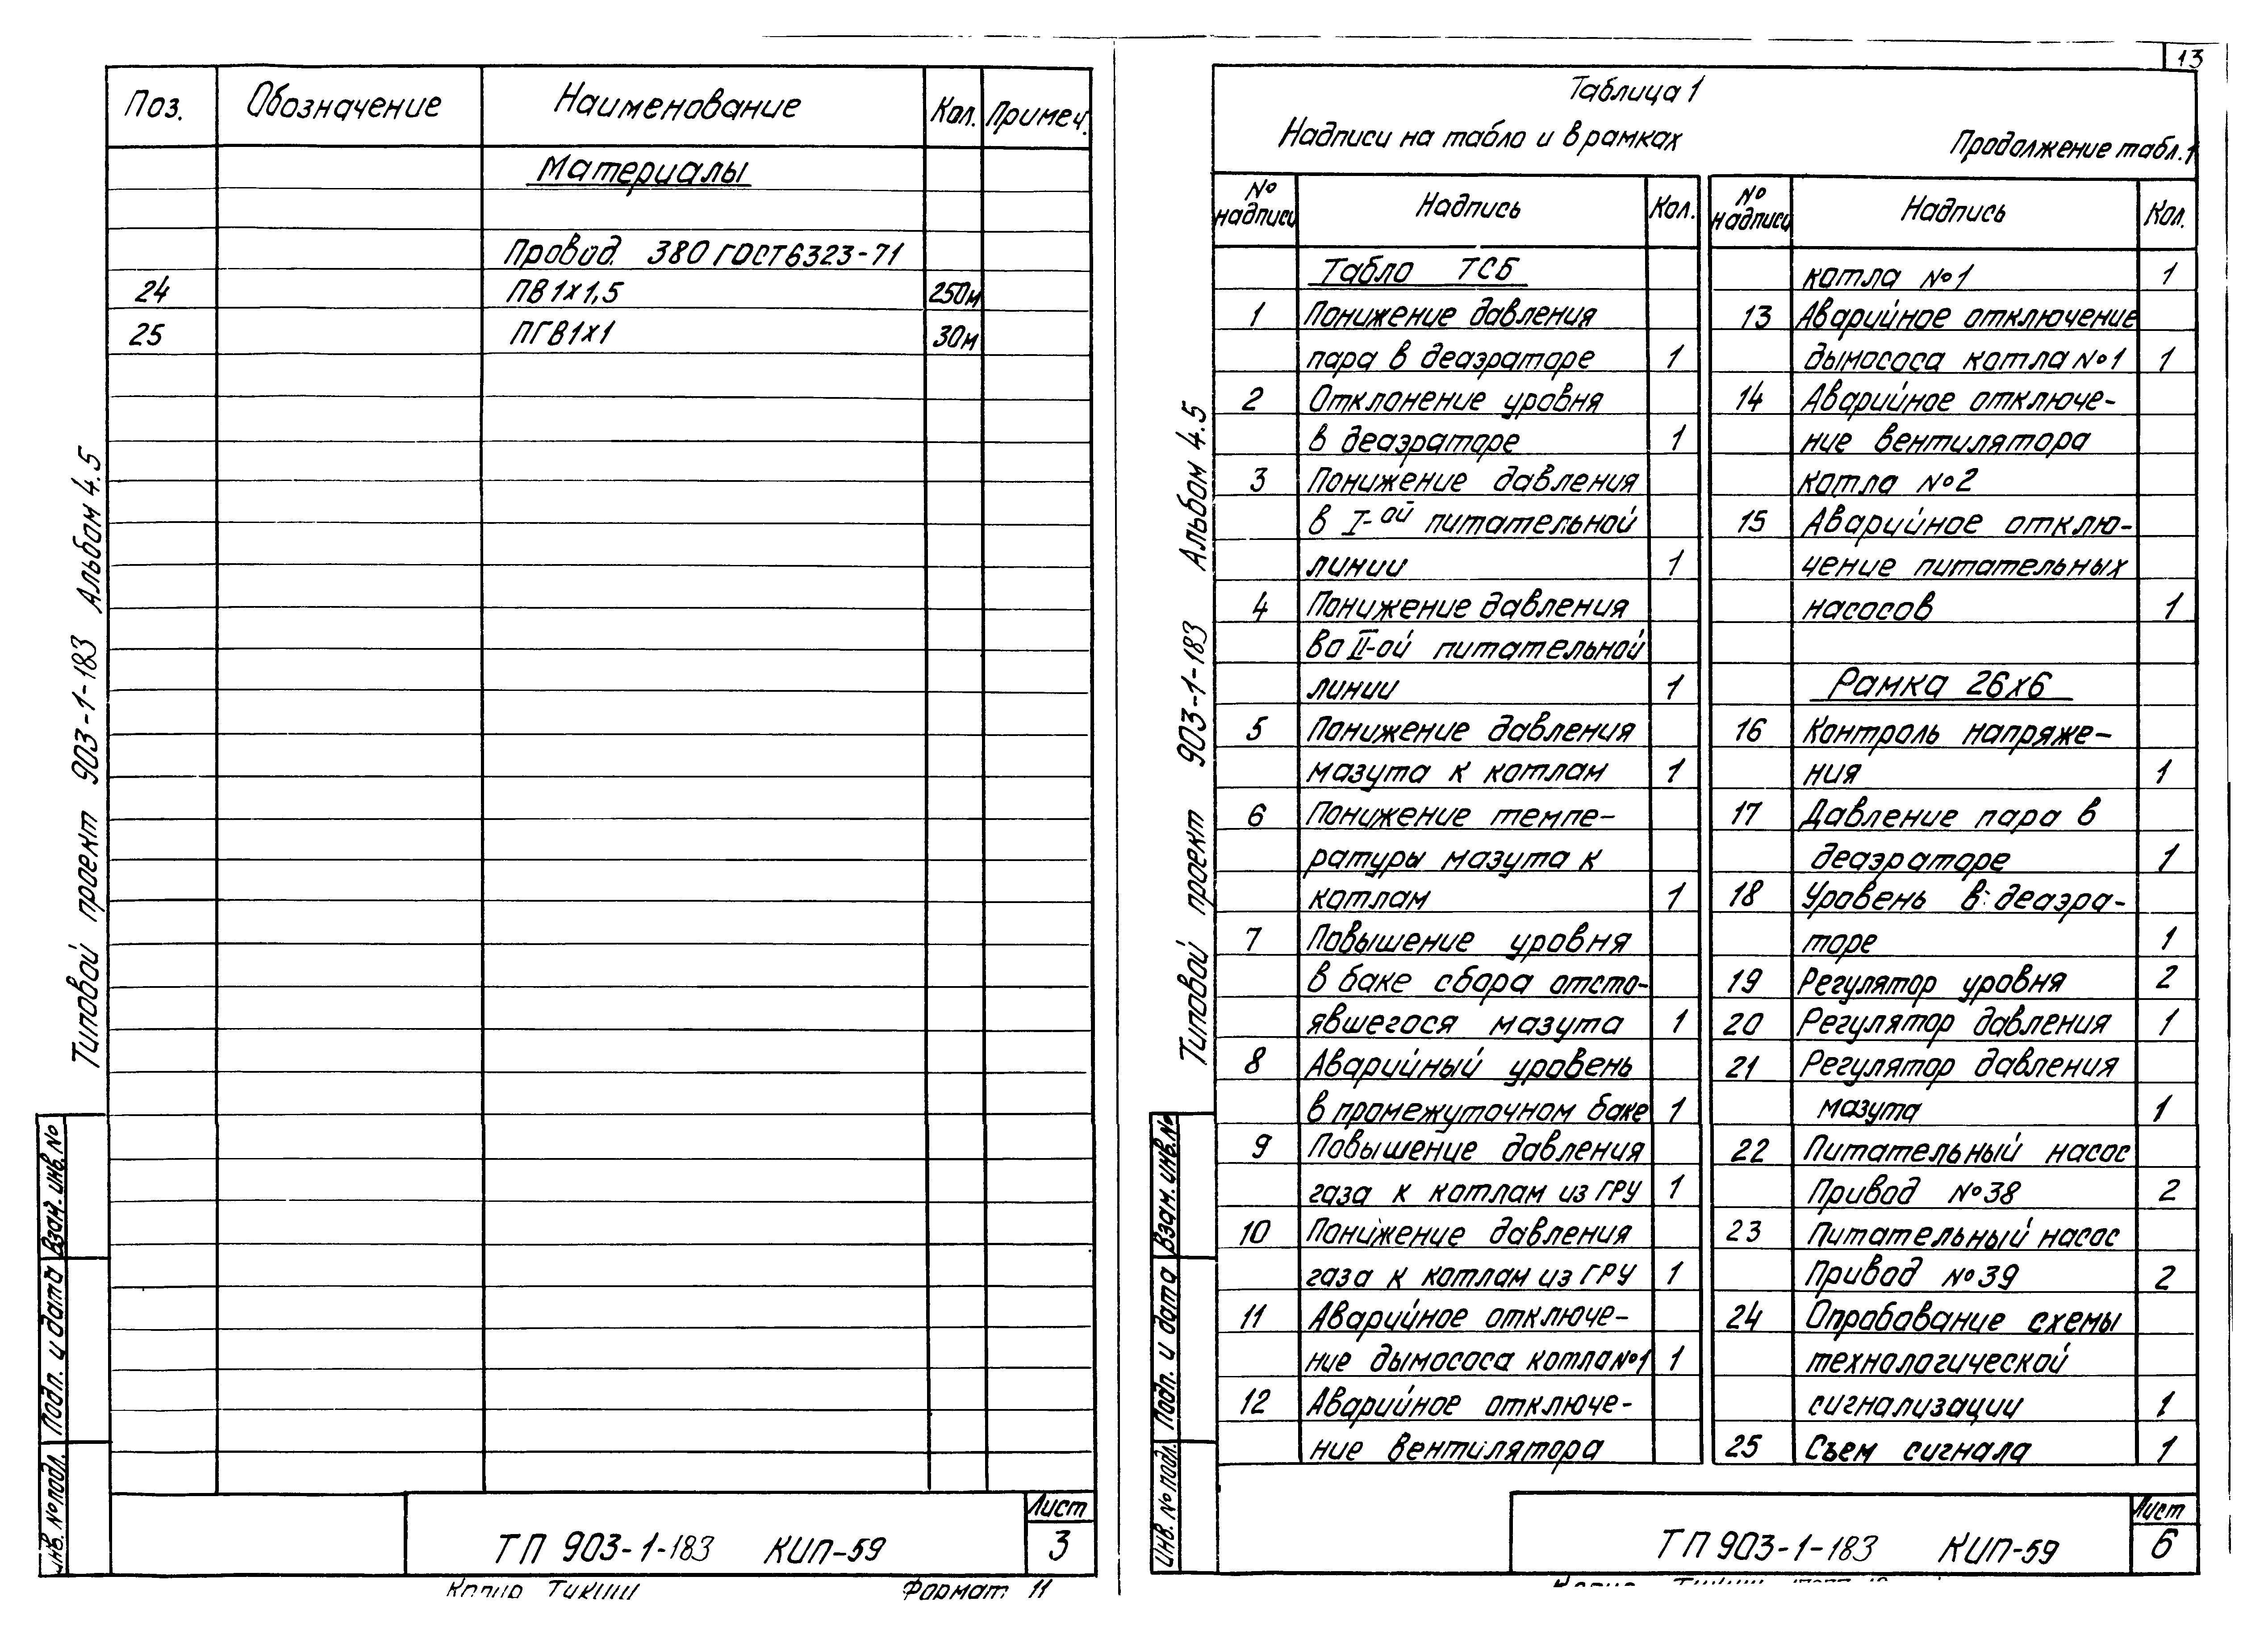 Поз. Обозначение Наименование Кол. Примеч.
Материалы
Провод 380 ГОСТ 6323-71
24 ПВ 1х1,5 250м
25 ПГВ 1х1 30м
Типовой проект 903-1-183 Альбом 4.5
Взам. инв. №
Подп. и дата
Инв. № подл.
ТП 903-1-183 КИП-59
Лист
3
Формат 11
13
Таблица 1
Надписи на табло и в рамках
Продолжение табл. 1
№ надписи Надпись Кол.
Табло ТСБ
1 Понижение давления
пара в деаэраторе 1
2 Отклонение уровня
в деаэраторе 1
3 Понижение давления
в I-ой питательной
линии 1
4 Понижение давления
во II-ой питательной
линии 1
5 Понижение давления
мазута к котлам 1
6 Понижение темпе-
ратуры мазута к
котлам 1
7 Повышение уровня
в баке сбора отсто-
явшегося мазута 1
8 Аварийный уровень
в промежуточном баке 1
9 Повышение давления
газа к котлам из ГРУ 1
10 Понижение давления
газа к котлам из ГРУ 1
11 Аварийное отключе-
ние дымососа котла №1 1
12 Аварийное отключе-
ние вентилятора
№ надписи Надпись Кол.
котла №1 1
13 Аварийное отключение
дымососа котла №1 1
14 Аварийное отключе-
ние вентилятора
котла №2
15 Аварийное отклю-
чение питательных
насосов 1
Рамка 26х6
16 Контроль напряже-
ния 1
17 Давление пара в
деаэраторе 1
18 Уровень в деаэра-
торе 1
19 Регулятор уровня 2
20 Регулятор давления 1
21 Регулятор давления
мазута 1
22 Питательный насос
Привод №38 2
23 Питательный насос
Привод №39 2
24 Опробование схемы
технологической
сигнализации 1
25 Съем сигнала 1
Типовой проект 903-1-183 Альбом 4.5
Взам. инв. №
Подп. и дата
Инв. № подл.
ТП 903-1-183 КИП-59
Лист
6